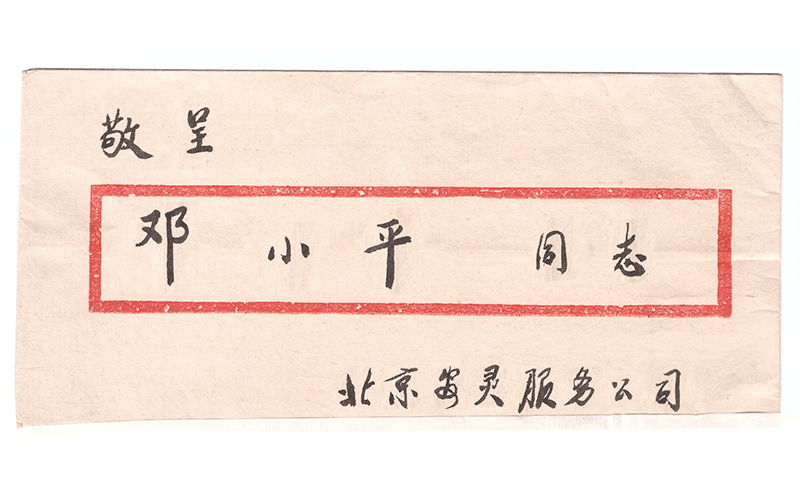 敬呈
邓小平 同志
北京安灵服务公司